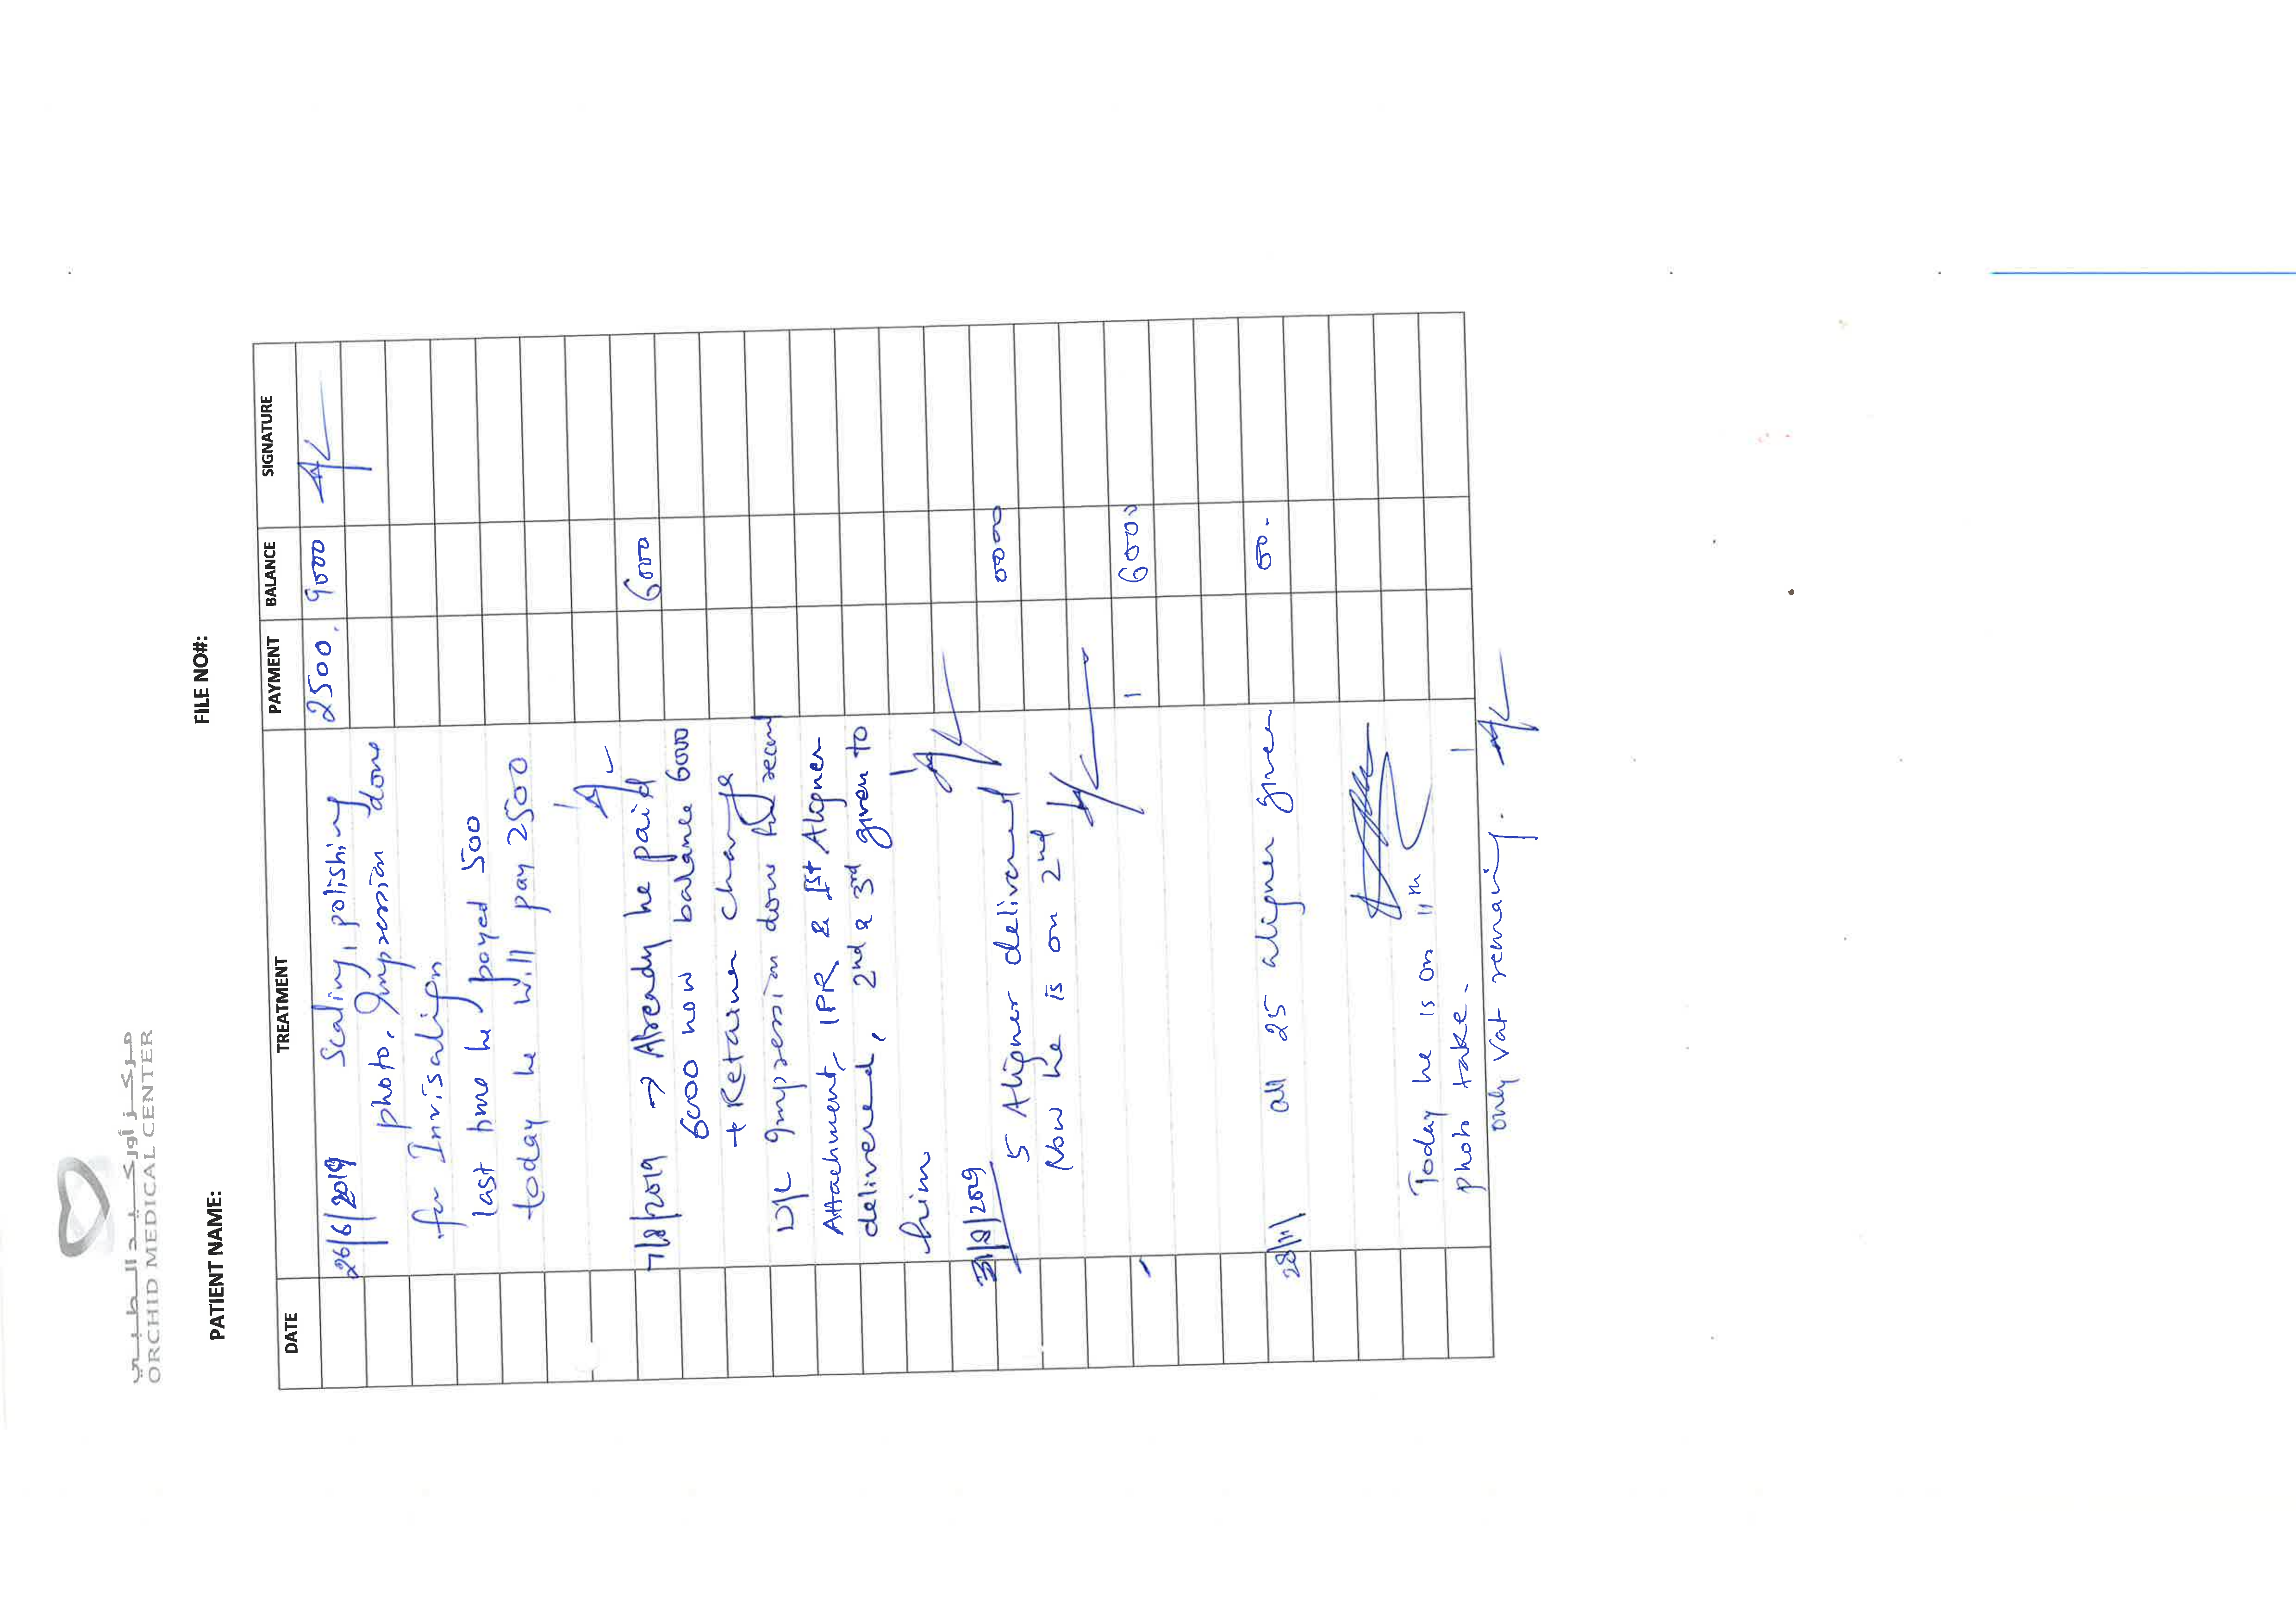 مركز أوركيد الطبي
ORCHID MEDICAL CENTER
PATIENT NAME: FILE NO#:
DATE TREATMENT PAYMENT BALANCE SIGNATURE
26/6/2019 Scaling, polishing 2500. 9000
photo, Impression done
for Invisalign
last time he payed 500
today he will pay 2500
7/8/2019 → Already he paid 6000
6000 now balance 6000
+ Retainer charge
U/L Impression done for
Attachment, IPR & 1st Aligner
delivered, 2nd & 3rd given to
him
31/8/2019 0000
5 Aligner delivered
Now he is on 2nd
6000
28/11 all 25 aligner given 00.
Today he is on 11th
photo take.
only vat remaining.